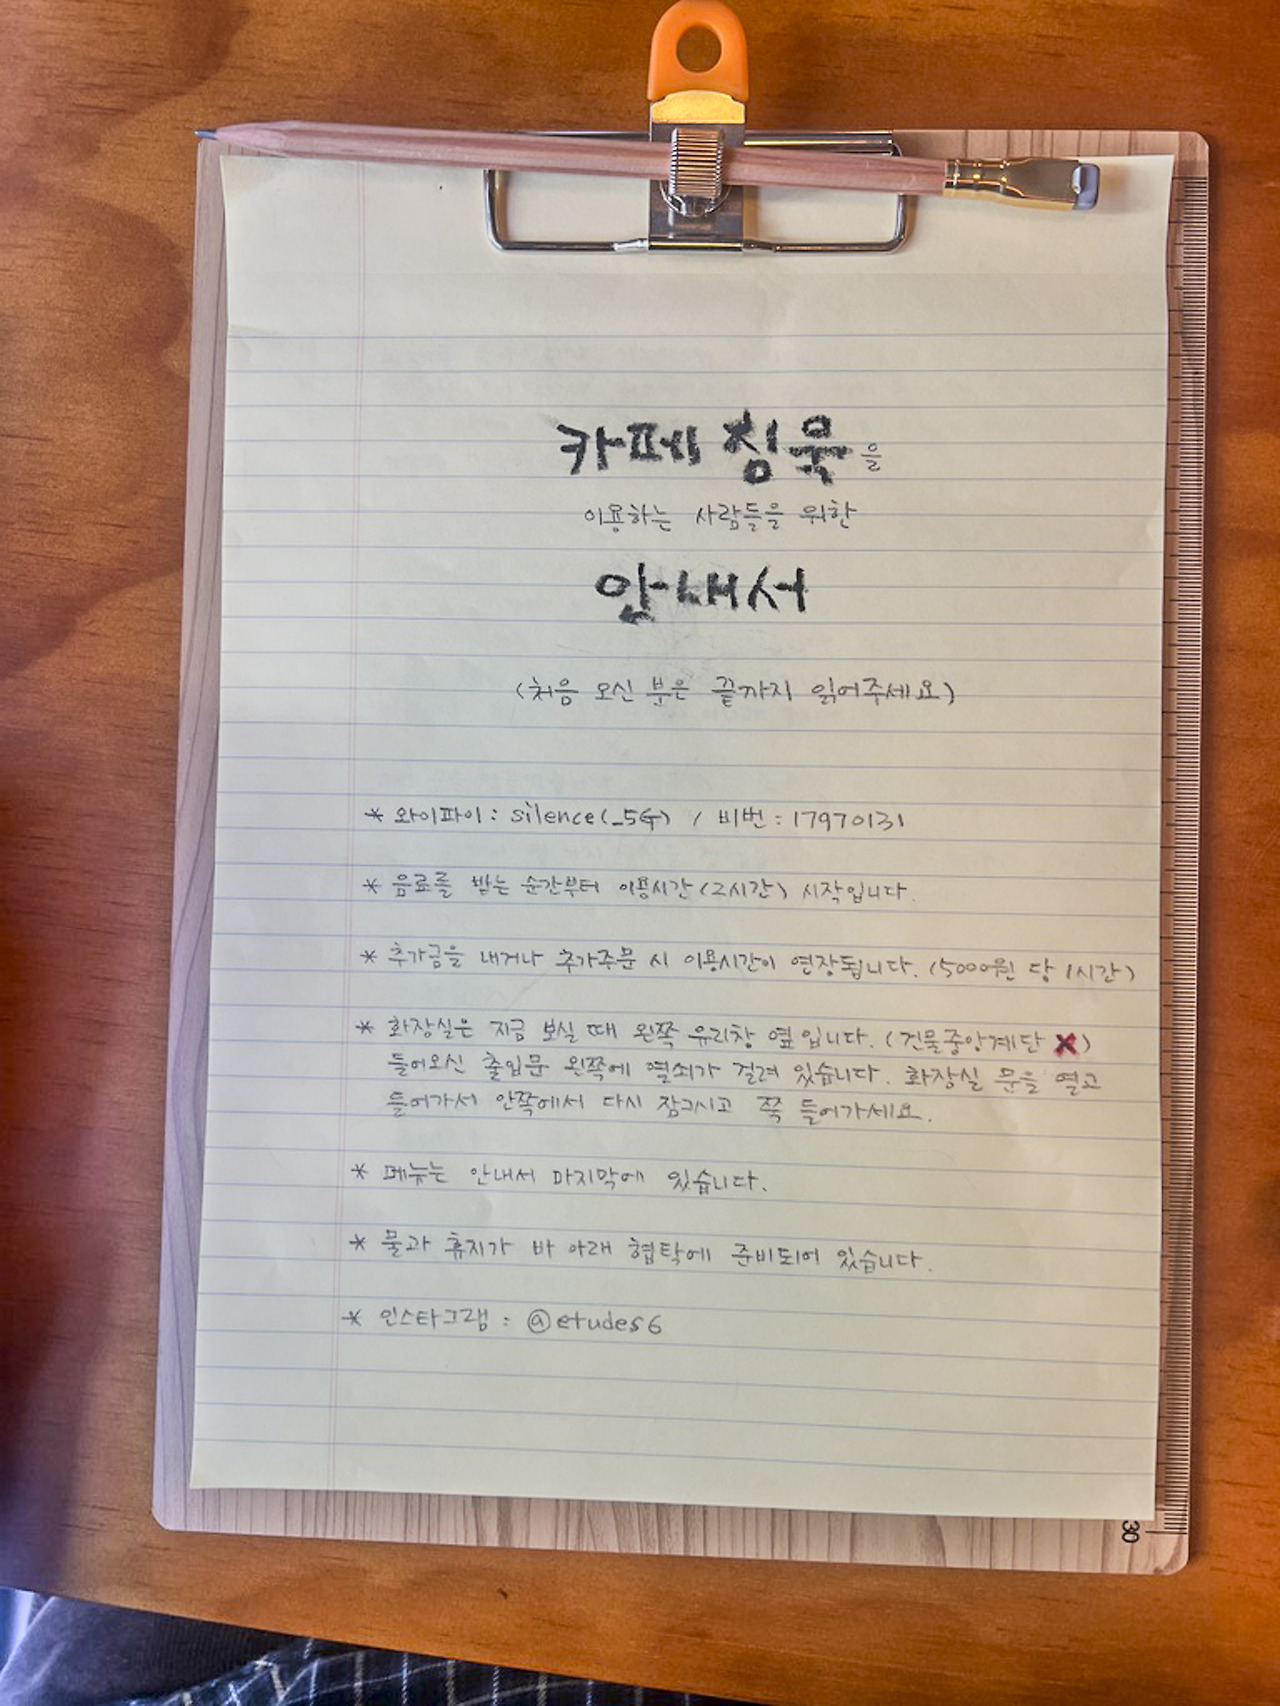 카페 침묵을
이용하는 사람들을 위한
안내서
(처음 오신 분은 끝까지 읽어주세요)
* 와이파이 : silence(_5G) / 비번 : 17970131
* 음료를 받는 순간부터 이용시간 (2시간) 시작입니다.
* 추가금을 내거나 추가주문 시 이용시간이 연장됩니다. (5000원 당 1시간)
* 화장실은 지금 보실 때 왼쪽 유리창 옆입니다. (건물중앙계단 X)
들어오신 출입문 왼쪽에 열쇠가 걸려 있습니다. 화장실 문을 열고
들어가서 안쪽에서 다시 잠그시고 쭉 들어가세요.
* 메뉴는 안내서 마지막에 있습니다.
* 물과 휴지가 바 아래 협탁에 준비되어 있습니다.
* 인스타그램 : @etudes6
30